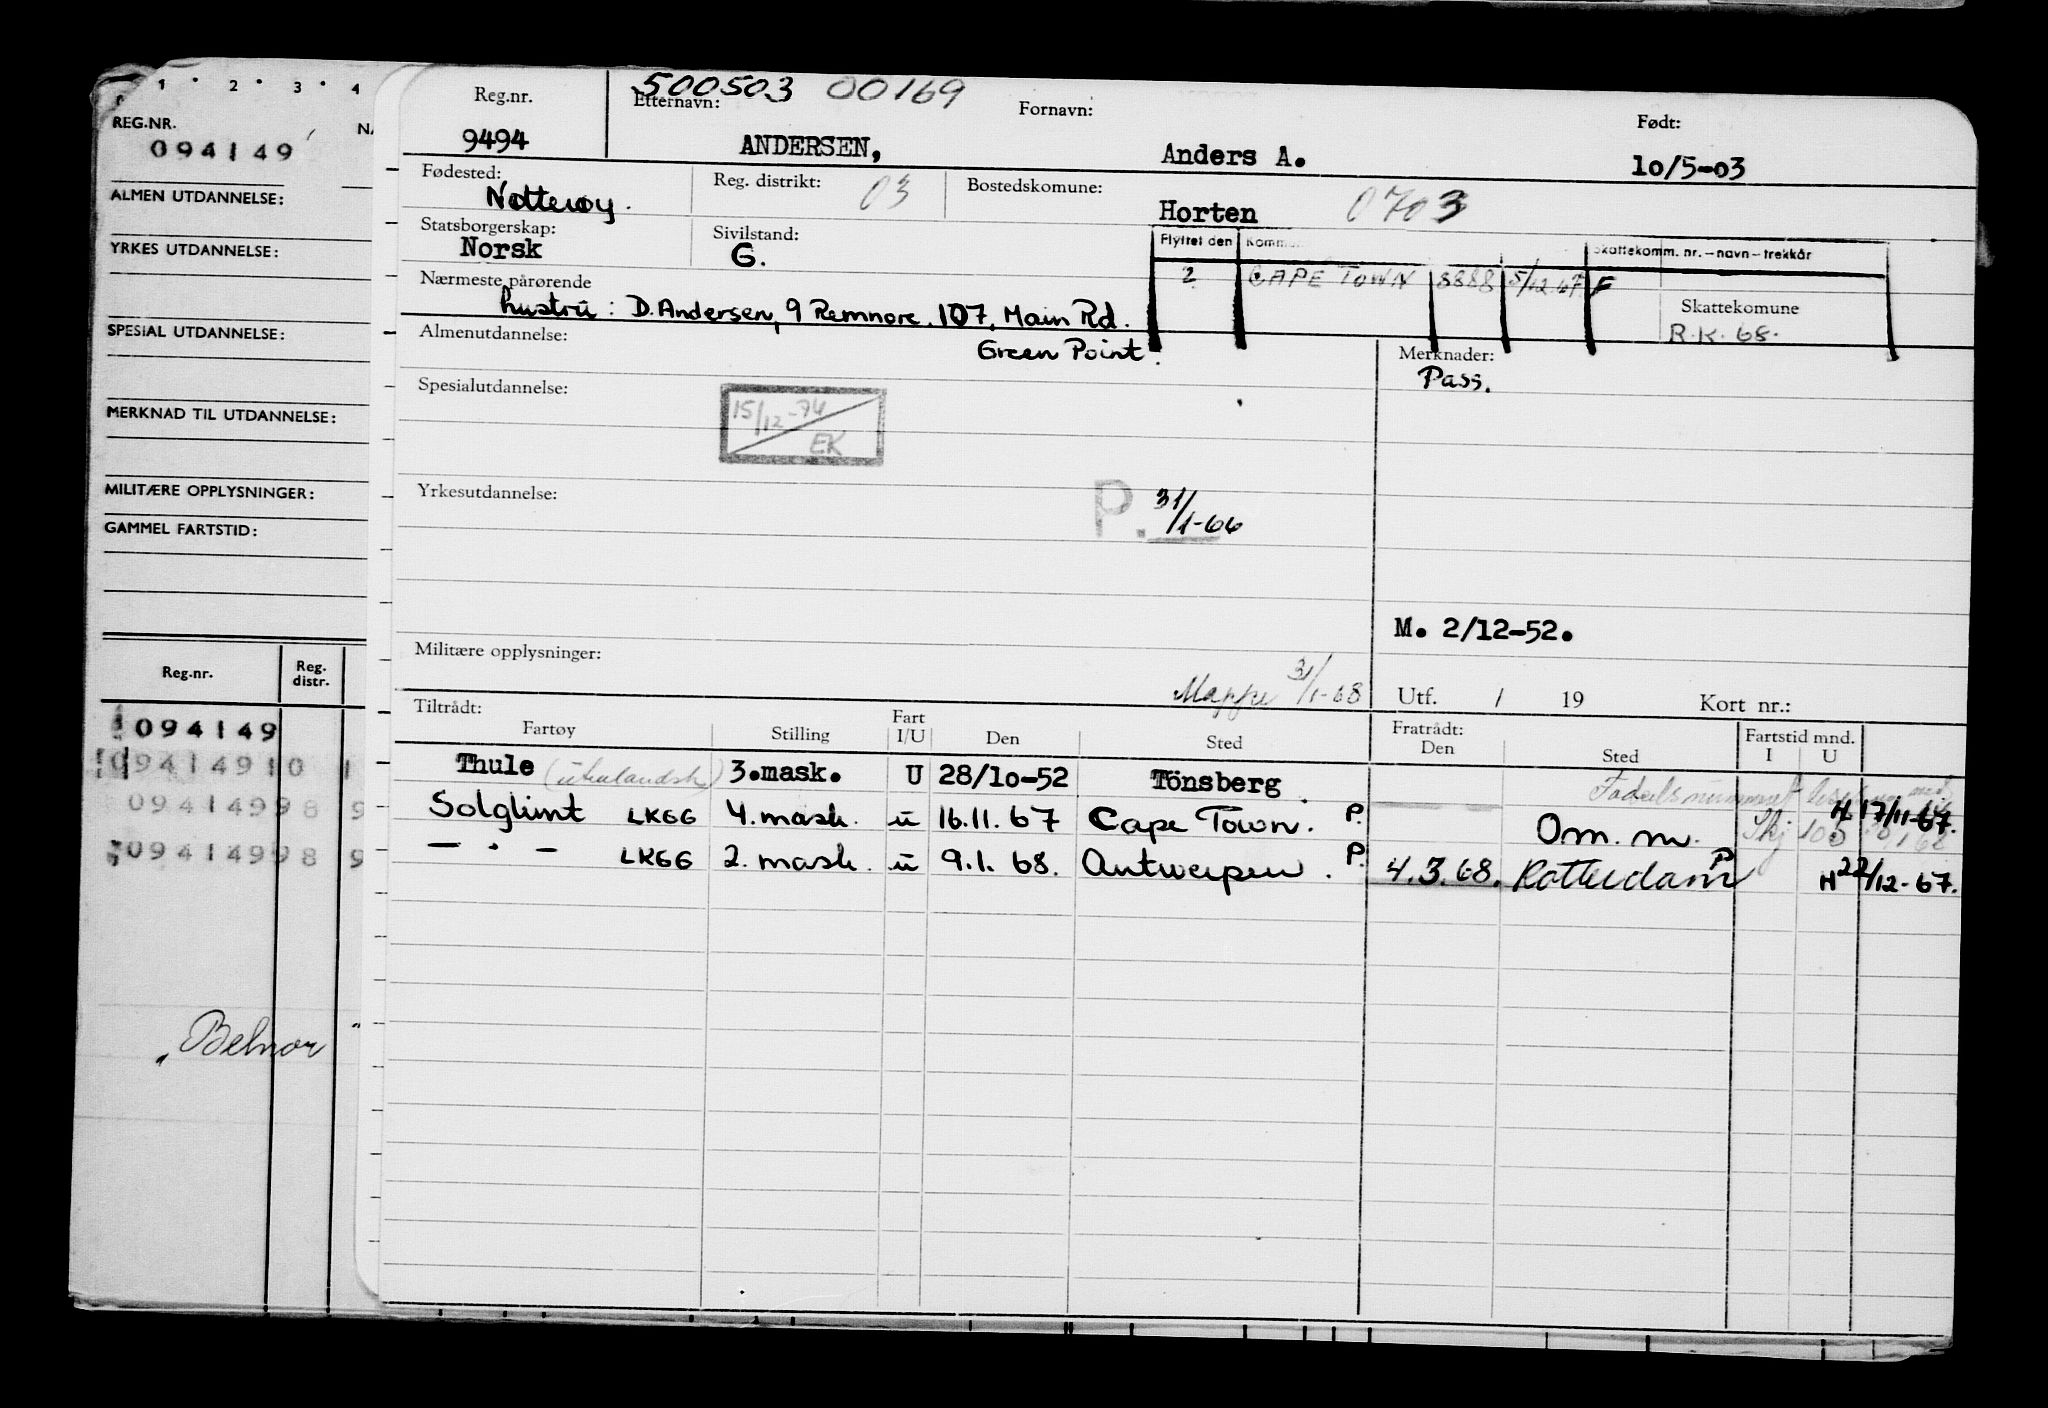 1 · 2 · 3 · 4
REG.NR.
094149
ALMEN UTDANNELSE:
YRKES UTDANNELSE:
SPESIAL UTDANNELSE:
MERKNAD TIL UTDANNELSE:
MILITÆRE OPPLYSNINGER:
GAMMEL FARTSTID:
Reg.nr. Reg. distr.
094149
094149
094149
094149
"Belnor"
500503 00169
Reg.nr. Etternavn: Fornavn: Født:
9494 ANDERSEN, Anders A. 10/5-03
Fødested: Reg. distrikt: 03 Bostedskomune:
Nøtterøy. Horten 0703
Statsborgerskap: Sivilstand:
Norsk G.
Flyttet den Komm. Skattekomm. nr. – navn – trekkår
2 CAPE TOWN 8888 5/12 67 F
Nærmeste pårørende Skattekomune
hustru: D. Andersen, 9 Remnore, 107, Main Rd. R.K. 68.
Almenutdannelse: Green Point. Merknader:
Pass.
Spesialutdannelse:
15/12-74
EK
Yrkesutdannelse: P. 31/1-66
M. 2/12-52.
Militære opplysninger:
Mappe 31/1-68 Utf. / 19 Kort nr.:
Tiltrådt: Fratrådt: Fartstid mnd.
Fartøy Stilling Fart I/U Den Sted Den Sted I U
Thule (utenlandsk) 3.mask. U 28/10-52 Tönsberg Fødselsnummeret
Solglimt LKGG 4. mask. u 16.11.67 Cape Town. P. Om. m. H 17/11-67.
— " — LKGG 2. mask. u 9.1.68. Antwerpen. P. 4.3.68. Rotterdam P H 22/12-67.